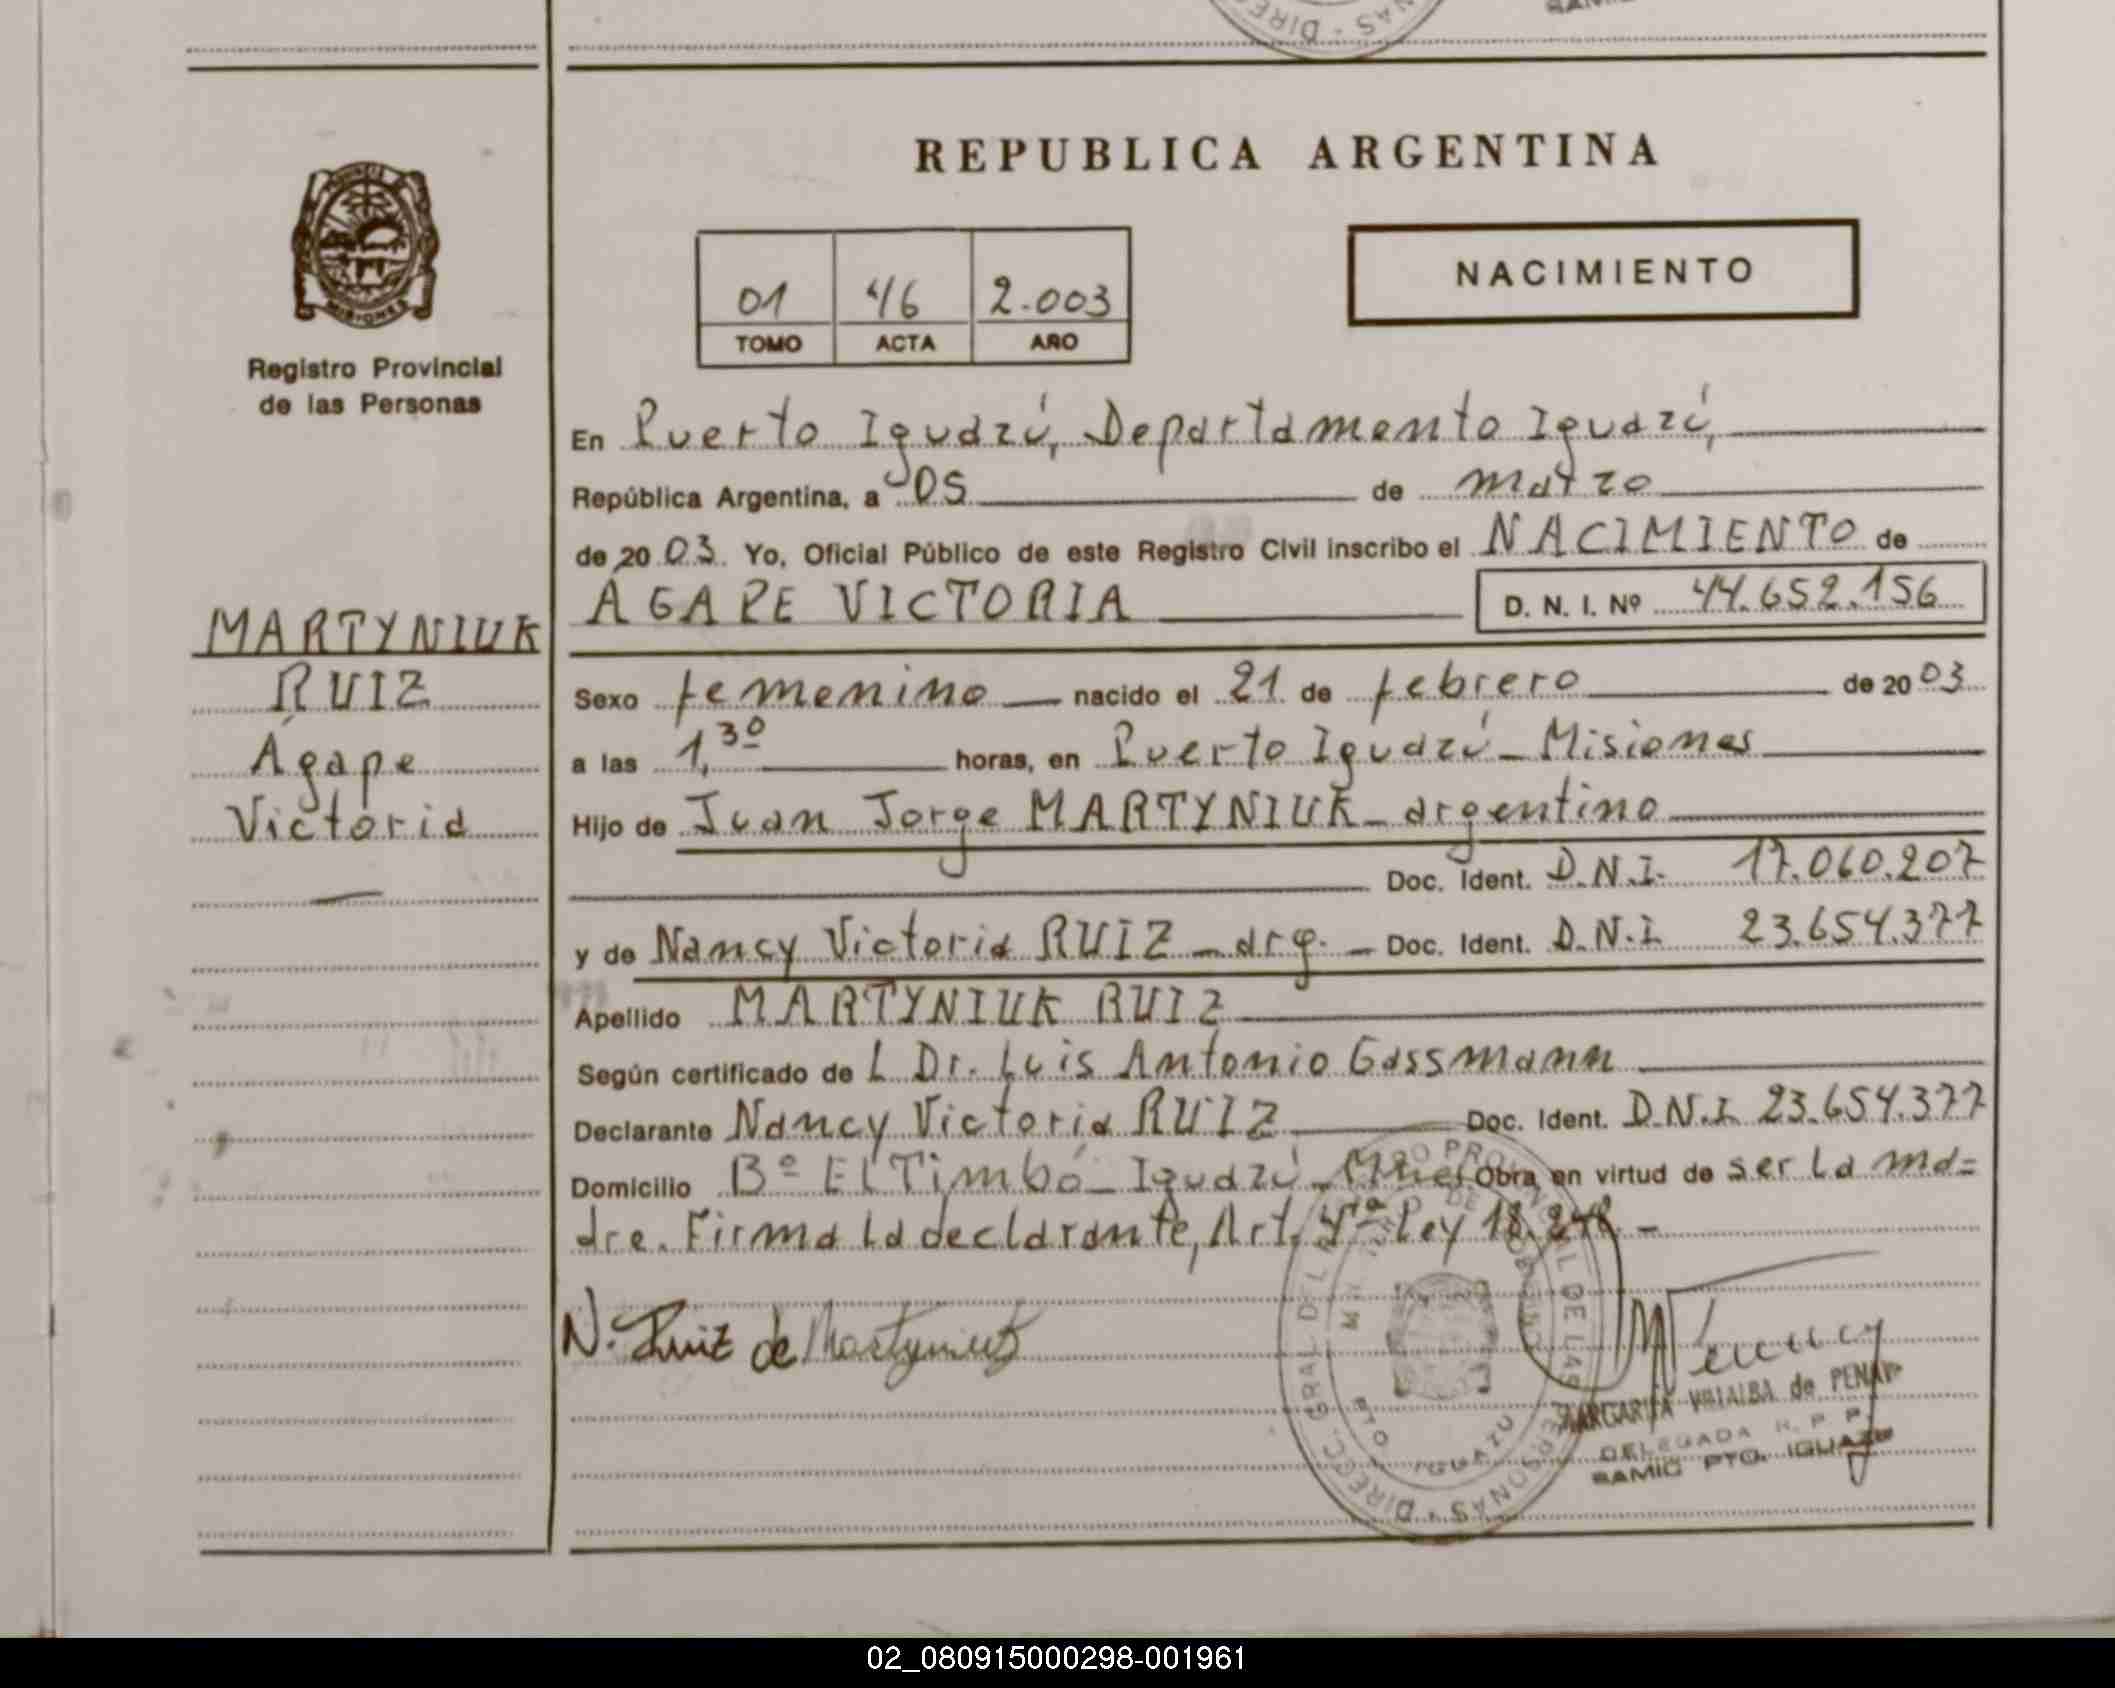 REPUBLICA ARGENTINA
NACIMIENTO
01 46 2.003
TOMO ACTA AÑO
PROVINCIA DE
MISIONES
Registro Provincial
de las Personas
MARTYNIUK
RUIZ
Ágape
Victoria
En Puerto Iguazú, Departamento Iguazú,
República Argentina, a 05 de marzo
de 20 03. Yo, Oficial Público de este Registro Civil inscribo el NACIMIENTO de
ÁGAPE VICTORIA D. N. I. Nº 44.652.156
Sexo femenino nacido el 21 de febrero de 20 03
a las 1,30 horas, en Puerto Iguazú - Misiones
Hijo de Juan Jorge MARTYNIUK - argentino
Doc. Ident. D.N.I. 17.060.207
y de Nancy Victoria RUIZ - arg. - Doc. Ident. D.N.I. 23.654.377
Apellido MARTYNIUK RUIZ
Según certificado de L Dr. Luis Antonio Gassmann
Declarante Nancy Victoria RUIZ Doc. Ident. D.N.I. 23.654.377
Domicilio Bº El Timbó - Iguazú - Mnes Obra en virtud de ser la ma=
dre. Firma la declarante, Art. 4ta Ley 18.248 -
N. Ruiz de Martyniuk
MARGARITA VILLALBA de PENAY
DELEGADA R. P. P.
SAMIC PTO. IGUAZU
DIRECC. GRAL DEL REGISTRO PROVINCIAL DE LAS PERSONAS
PTO. IGUAZU
02_080915000298-001961